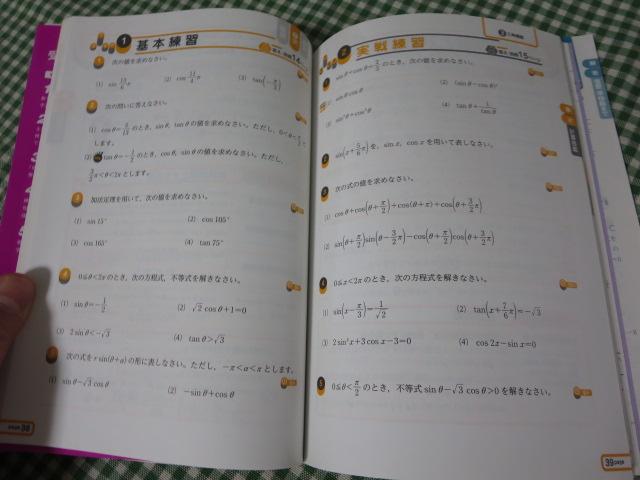 1 基本練習
1 次の値を求めなさい。
(1) sin 13/6 π (2) cos 11/4 π (3) tan(−π/3)
2 次の問いに答えなさい。
(1) cosθ=5/13 のとき，sinθ，tanθの値を求めなさい。ただし，0<θ<π/2と
します。
(2) tanθ=−1/2 のとき，cosθ，sinθの値を求めなさい。ただし，
3/2 π<θ<2πとします。
3 加法定理を用いて，次の値を求めなさい。
(1) sin15° (2) cos105°
(3) cos165° (4) tan75°
4 0≦θ<2πのとき，次の方程式，不等式を解きなさい。
(1) sinθ=−1/2 (2) √2 cosθ+1=0
(3) 2sinθ<−√3 (4) tanθ>√3
5 次の式をr sin(θ+α)の形に表しなさい。ただし，−π<α<πとします。
(1) sinθ−√3 cosθ (2) −sinθ+cosθ
38
2 実戦練習
1 sinθ+cosθ= のとき，次の値を求めなさい。
(1) sinθcosθ (2) (sinθ−cosθ)²
(3) sin³θ+cos³θ (4) tanθ+1/tanθ
2 sin(x+5/6 π)を，sinx，cosxを用いて表しなさい。
3 次の式の値を求めなさい。
(1) cosθ+cos(θ+π/2)+cos(θ+π)+cos(θ+3/2 π)
(2) sin(θ+π/2)sin(θ−3/2 π)−cos(θ+π/2)cos(θ+3/2 π)
4 0≦x<2πのとき，次の方程式を解きなさい。
(1) sin(x−π/3)=1/√2 (2) tan(x+7/6 π)=−√3
(3) 2sin²x+3cosx−3=0 (4) cos2x−sinx=0
5 0≦θ<π/2 のとき，不等式 sinθ−√3 cosθ>0を解きなさい。
39